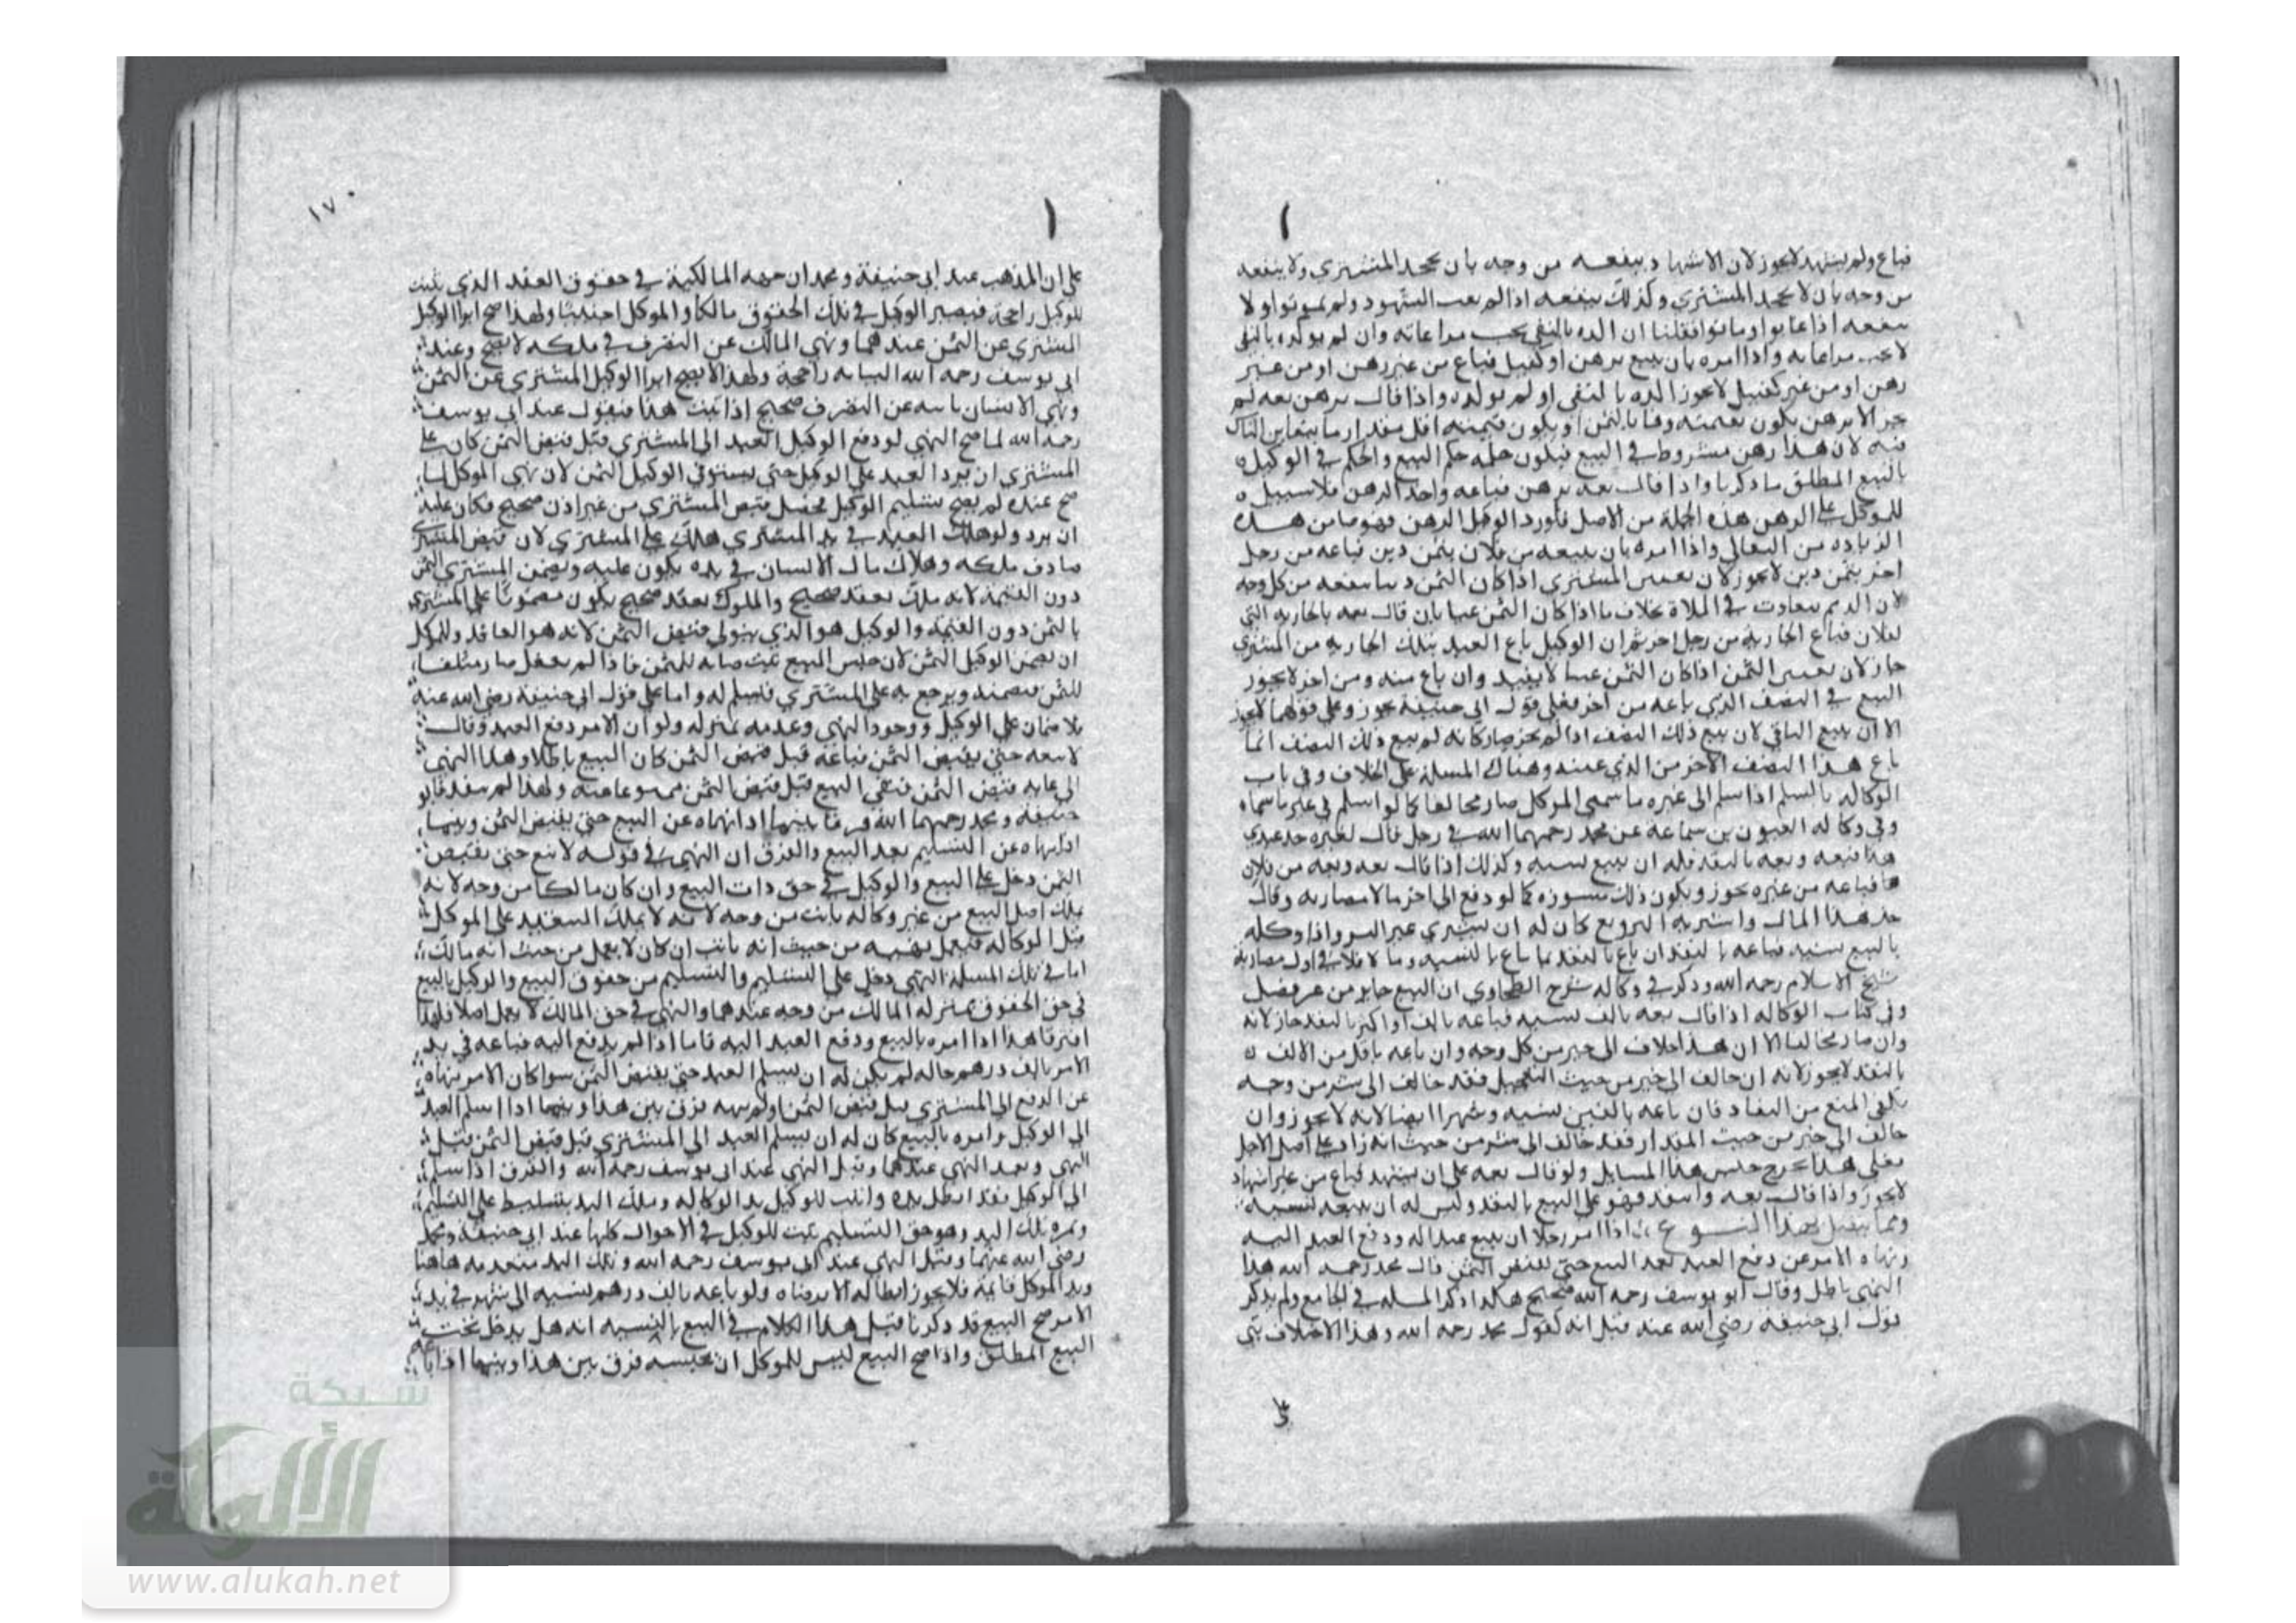 فباع ولم يشهد لا يجوز لان الاشهاد ينفعه من وجه بان يجحد المشتري ولا ينفعه
من وجه بان لا يجحد المشتري وكذلك ينفعه اذا لم يغب الشهود ولم يموتوا ولا
ينفعه اذا غابوا وماتوا فقلنا ان اكده بالنفي يجب مراعاته وان لم يوكده بالنفي
لا يجب مراعاته واذا امره بان يبيع برهن او كفيل فباع من غير رهن او من غير
رهن او من غير كفيل لا يجوز اكده بالنفي او لم يوكده واذا قال برهن بعه لم
يجز الا برهن يكون بقيمته وفا بالثمن او يكون قيمته اقل مقدار ما يتغابن الناس
فيه لان هذا رهن مشروط في البيع فيكون حكمه حكم البيع والحكم في الوكيل
بالبيع المطلق ما ذكرنا واذا قال بعه برهن فباعه واخذ الرهن فلا سبيل
للموكل على الرهن هذه الجملة من الاصل فلو رد الوكيل الرهن فهو ضامن هذه
الزيادة من واذا امره بان يبيعه من فلان بثمن دين فباعه من رجل
اخر بثمن دين لا يجوز لان تعيين المشتري اذا كان الثمن دينا ينفعه من كل وجه
لان الذمم تتفاوت في الملاة بخلاف ما اذا كان الثمن عينا بان قال بعه بالجارية التي
لفلان فباع الجارية من رجل اخر ثم ان الوكيل باع العبد بتلك الجارية من المشتري
جاز لان تعيين الثمن اذا كان الثمن عينا لا يفيد وان باع منه ومن اخر لا يجوز
البيع في النصف الذي باعه من اخر فعلى قول ابي حنيفة يجوز وعلى قولهما لا يجوز
الا ان يبيع الباقي لان بيع ذلك النصف اذا لم يجز صار كانه لم يبيع ذلك النصف انما
باع هذا النصف الاخر من الذي عينه وهناك المسلة على الخلاف وفي باب
الوكالة بالسلم اذا سلم الى غيره ما سمى الموكل صار مخالفا كما لو اسلم في غير ما سماه
وفي وكالة العيون بن سماعة عن محمد رحمهما الله في رجل قال لغيره خذ عبدي
هذا فبعه وبعه بالنقد فله ان يبيع نسية وكذلك اذا قال بعه وبعه من فلان
فباعه من غيره يجوز ويكون ذلك مشوره كما لو دفع الى اخر مالا مضاربة وقال
خذ هذا المال واشتر به البز وبع كان له ان يشتري غير البز واذا وكله
بالبيع نسية فباعه بالنقد ان باع بالنقد بما يباع بالنسية وما لا فلا في اول مضاربة
شيخ الاسلام رحمه الله وذكر في وكالة شرح الطحاوي ان البيع جايز من غير فصل
وفي كتاب الوكالة اذا قال بعه بالف نسية فباعه بالف او اكثر بالنقد جاز لانه
وان صار مخالفا الا ان هذا خلاف الى خير من كل وجه وان باعه باقل من الالف
بالنقد لا يجوز لانه ان خالف الى خير من حيث التعجيل فقد خالف الى شر من وجه
يكفي المنع من النفاد فان باعه بالفين نسية وشهرا ايضا لانه لا يجوز وان
خالف الى خير من حيث المقدار فقد خالف الى شر من حيث انه زاد على اصل الاجل
فعلى هذا يخرج جنس هذا المسايل ولو قال بعه على ان يشهد فباع من غير اشهاد
لا يجوز واذا قال بعه واشهد فهو على البيع بالنقد وليس له ان يبيعه نسية
ومما يتصل بهذا النوع اذا امر رجلا ان يبيع عبدا له ودفع العبد اليه
ونهاه الامر عن دفع العبد بعد البيع حتى يقبض الثمن قال محمد رحمه الله هذا
النهي باطل وقال ابو يوسف رحمه الله صحيح هكذا ذكر المسلة في الجامع ولم يذكر
قول ابي حنيفة رضي الله عنه قيل انه كقول محمد رحمه الله وهذا الاختلاف بني
١٧٠
على ان المذهب عند ابي حنيفة ومحمد ان جهة المالكية في حقوق العقد الذي يثبت
للوكيل راجحة فيصير الوكيل في تلك الحقوق مالكا والموكل اجنبيا ولهذا صح ابرا الوكيل
المشتري عن الثمن عندهما ونهي المالك عن التصرف في ملكه لا يصح وعند
ابي يوسف رحمه الله النيابة راجحة ولهذا لا يصح ابرا الوكيل المشتري عن الثمن
ونهي الانسان نايبه عن التصرف صحيح اذا ثبت هذا فيقول عند ابي يوسف
رحمه الله لما صح النهي لو دفع الوكيل العبد الى المشتري قبل قبض الثمن كان على
المشتري ان يرد العبد على الوكيل حتى يستوفي الوكيل الثمن لان نهي الموكل لما
صح عنده لم يصح تسليم الوكيل فحصل قبض المشتري من غير اذن صحيح فكان عليه
ان يرد ولو هلك العبد في يد المشتري هلك على المشتري لان قبض المشتري
صادف ملكه وهلاك مال الانسان في يده يكون عليه ويضمن المشتري الثمن
دون القيمة لانه ملك بعقد صحيح والمملوك بعقد صحيح يكون مضمونا على المشتري
بالثمن دون القيمة والوكيل هو الذي يتولى قبض الثمن لانه هو العاقد وللموكل
ان يضمن الوكيل الثمن لان حبس المبيع ثبت صيانة للثمن فاذا لم يفعل صار متلفا
للثمن فيضمنه ويرجع به على المشتري فيسلم له واما على قول ابي حنيفة رضي الله عنه
فلا ضمان على الوكيل ووجود النهي وعدمه بمنزلة ولو ان الامر دفع العبد وقال
لا تبعه حتى يقبض الثمن فباعه قبل قبض الثمن كان البيع باطلا وهذا النهي
الى غاية قبض الثمن فبقي البيع قبل قبض الثمن ممنوعا عنه ولهذا لم ينفذ فابو
حنيفة ومحمد رحمهما الله فرقا بينهما اذا نهاه عن البيع حتى يقبض الثمن وبينما
اذا نهاه عن التسليم بعد البيع والفرق ان النهي في قوله لا تبع حتى تقبض
الثمن دخل على البيع والوكيل في حق ذات البيع وان كان مالكا من وجه لانه
ملك اصل البيع من غير وكالة نايب من وجه لانه لا يملك التنفيذ على الموكل
قبل الوكالة فيعمل نهيه من حيث انه نايب ان كان لا يعمل من حيث انه مالك
اما في تلك المسلة النهي دخل على التسليم والتسليم من حقوق البيع والوكيل بالبيع
في حق الحقوق بمنزلة المالك من وجه عندهما والنهي في حق المالك لا يعمل اصلا فلهذا
افترقا هذا اذا امره بالبيع ودفع العبد اليه فاما اذا لم يدفع اليه فباعه في يد
الامر بالف درهم حالة لم يكن له ان يسلم العبد حتى يقبض الثمن سوا كان الامر نهاه
عن الدفع الى المشتري قبل قبض الثمن او لم ينهه فرق بين هذا وبينما اذا اسلم العبد
الى الوكيل وامره بالبيع كان له ان يسلم العبد الى المشتري قبل قبض الثمن قبل
النهي وبعد النهي عندهما وقبل النهي عند ابي يوسف رحمه الله والفرق اذا سلم
الى الوكيل فقد ابطل يده واثبت للوكيل يد الوكالة وملك اليد بتسليط على التسليم
وثمرة تلك اليد وهو حق التسليم يثبت للوكيل في الاحوال كلها عند ابي حنيفة ومحمد
رضي الله عنهما وقبل النهي عند ابي يوسف رحمه الله وتلك اليد منعدمة هاهنا
ويد الموكل قايمة فلا يجوز ابطاله الا برضاه ولو باعه بالف درهم نسية الى شهر في يد
الامر صح البيع قد ذكرنا قبل هذا الكلام في البيع بالنسية انه هل يدخل تحت
البيع المطلق واذا صح البيع ليس للموكل ان يحبسه فرق بين هذا وبينما اذا باعه
شبكة
الألوكة
www.alukah.net